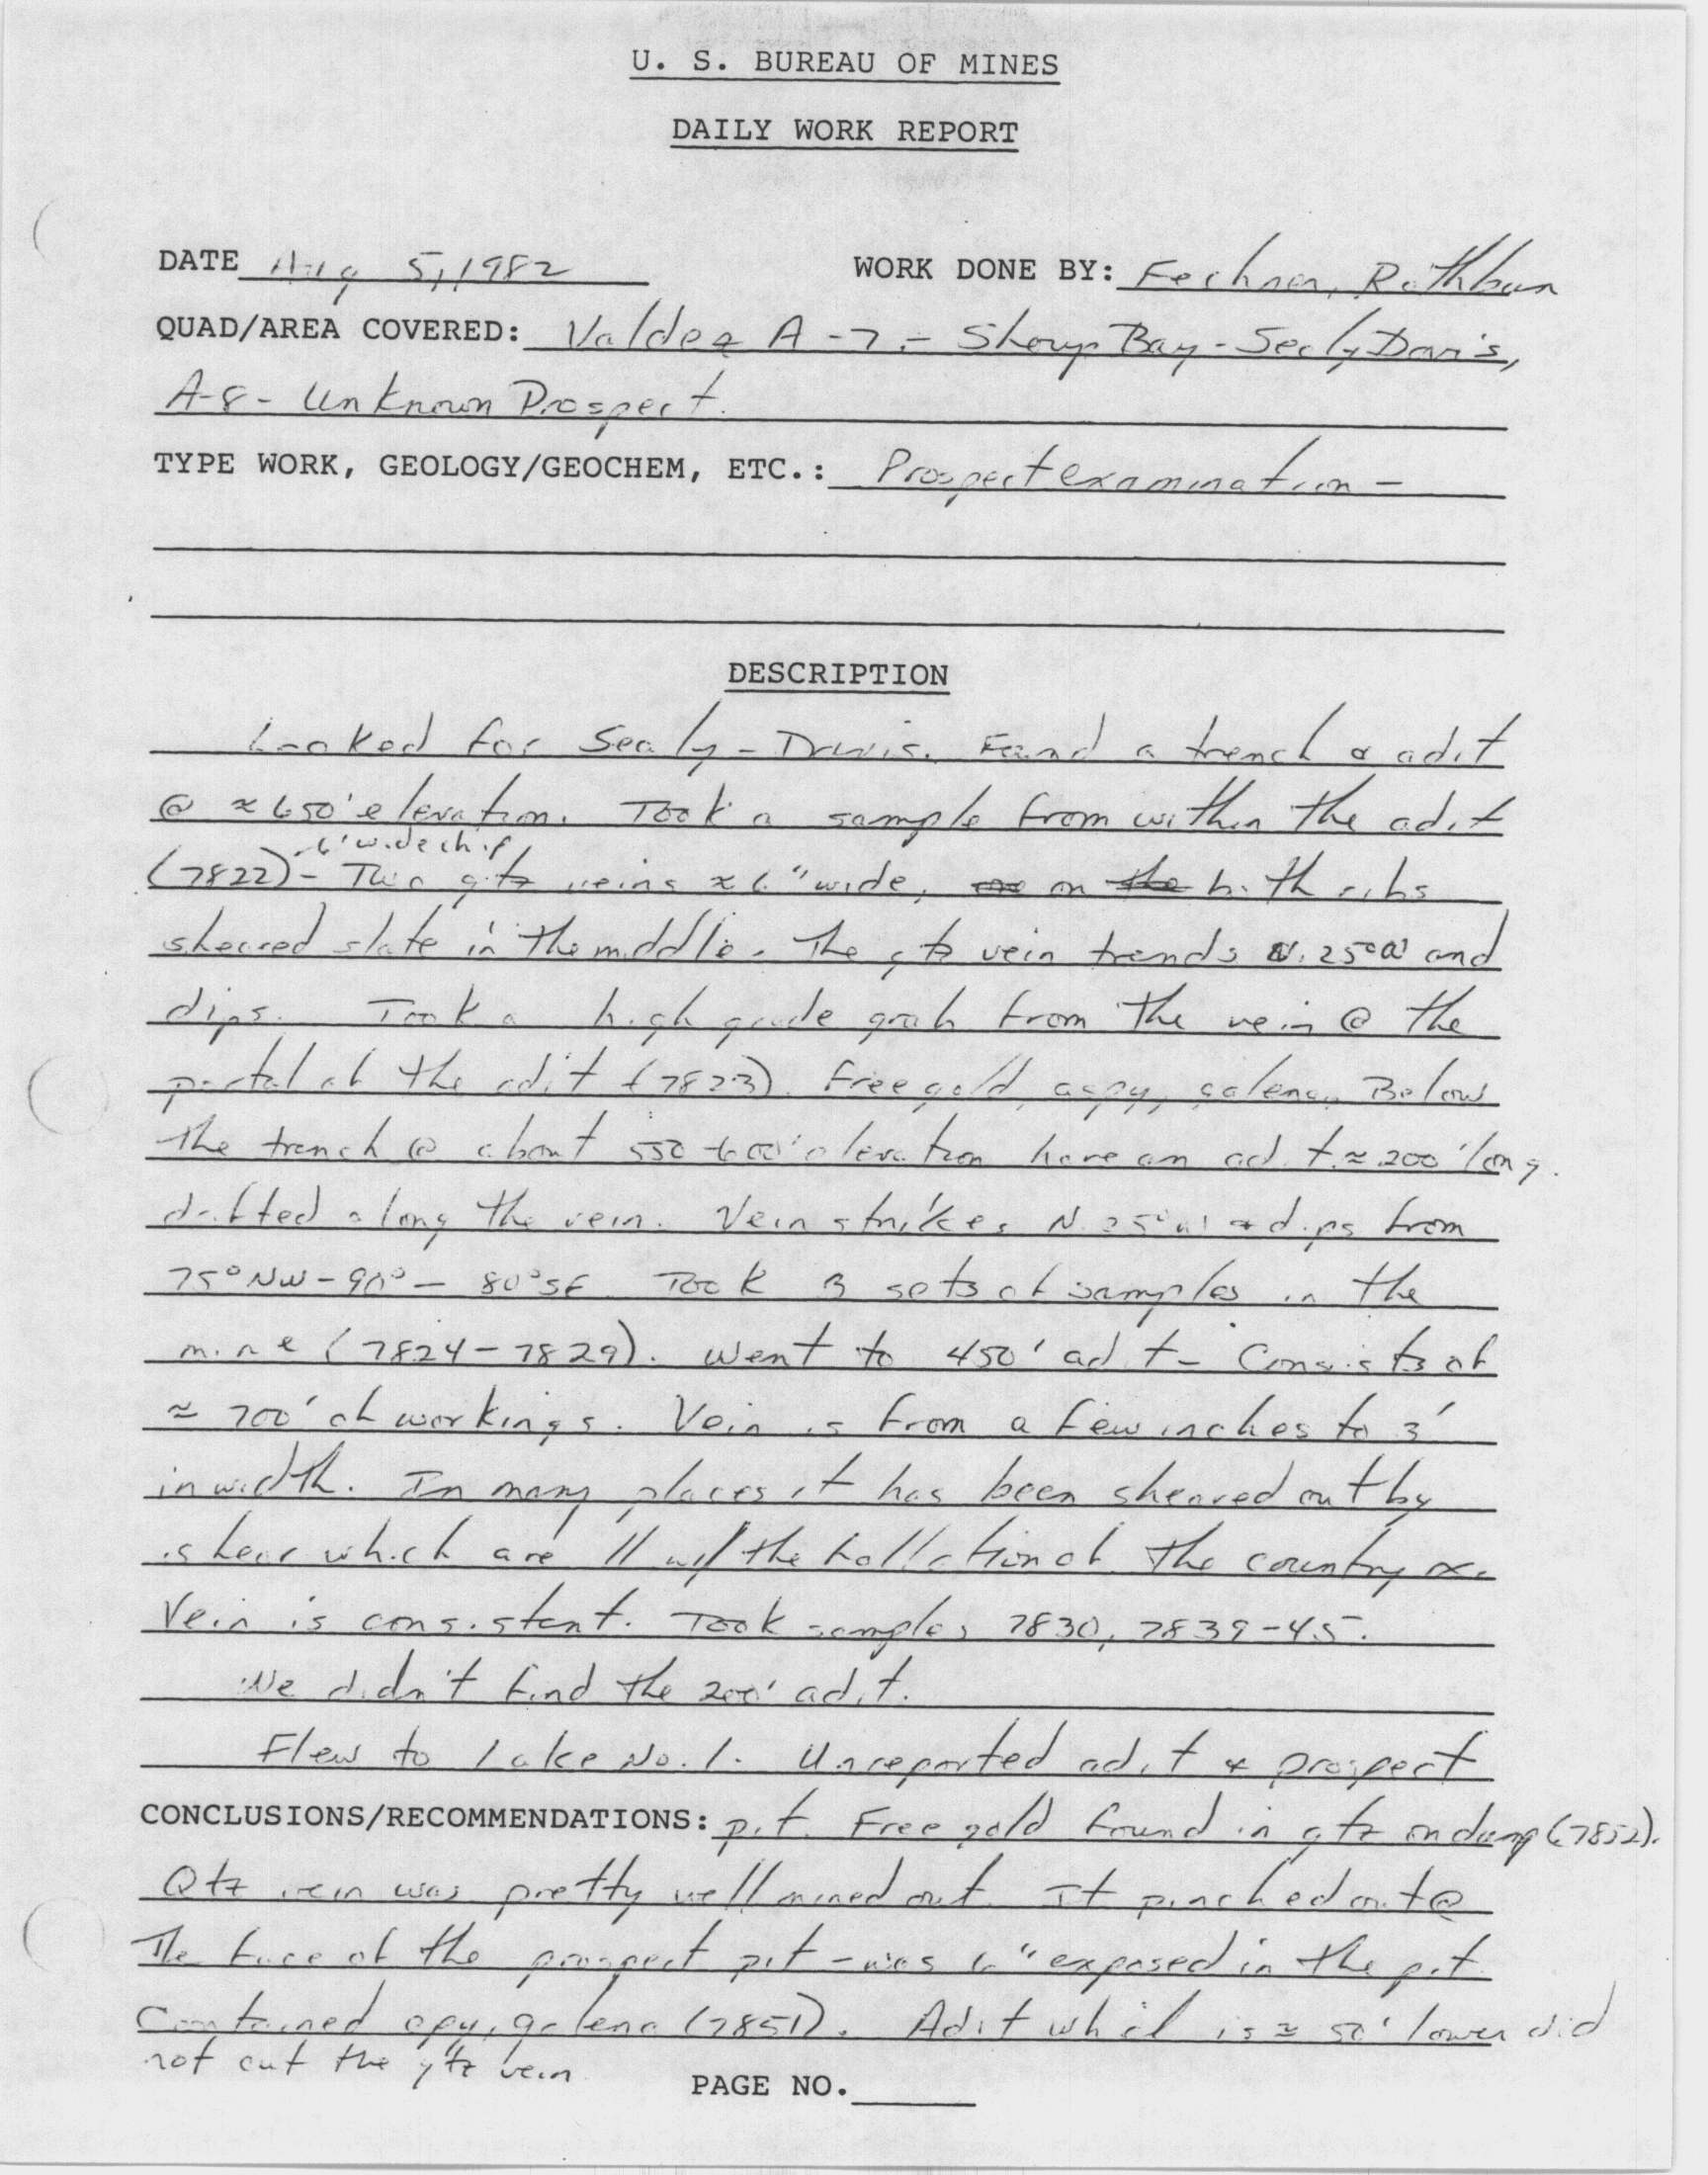 U. S. BUREAU OF MINES
DAILY WORK REPORT
DATE Aug 5, 1982 WORK DONE BY: Fechner, Rathbun
QUAD/AREA COVERED: Valdez A-7 - Shoup Bay - Sealy Davis,
A-8 - Unknown Prospect.
TYPE WORK, GEOLOGY/GEOCHEM, ETC.: Prospect examination -
DESCRIPTION
Looked for Sealy-Davis. Found a trench & adit
@ ≈ 650' elevation. Took a sample from within the adit
- 6' wide chip
(7822) - Two qtz veins ≈ 6" wide, on both ribs
sheared slate in the middle. The qtz vein trends N. 25°W and
dips. Took a high grade grab from the vein @ the
portal of the adit (7823). Free gold, aspy, galena. Below
the trench @ about 550-600' elevation have an adit ≈ 200' long.
drifted along the vein. Vein strikes N. 25°W & dips from
75°NW - 90° - 80°SE. Took 3 sets of samples in the
mine (7824-7829). Went to 450' adit - Consists of
≈ 700' of workings. Vein is from a few inches to 3'
in width. In many places it has been sheared out by
shear which are // w/ the foliation of the country rx.
Vein is consistent. Took samples 7830, 7839-45.
We didn't find the 200' adit.
Flew to Lake No. 1. Unreported adit & prospect
CONCLUSIONS/RECOMMENDATIONS: pit. Free gold found in qtz on dump (7852).
Qtz vein was pretty well mined out. It pinched out @
The face of the prospect pit - was 6" exposed in the pit
Contained apy, galena (7851). Adit which is ≈ 50' lower did
not cut the qtz vein
PAGE NO.